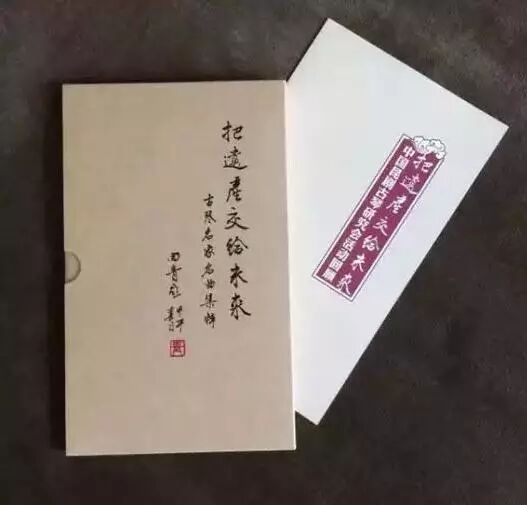 把遗产交给未来
古琴名家名曲集粹
田青题
把遗产交给未来
中国昆剧古琴研究会活动回顾